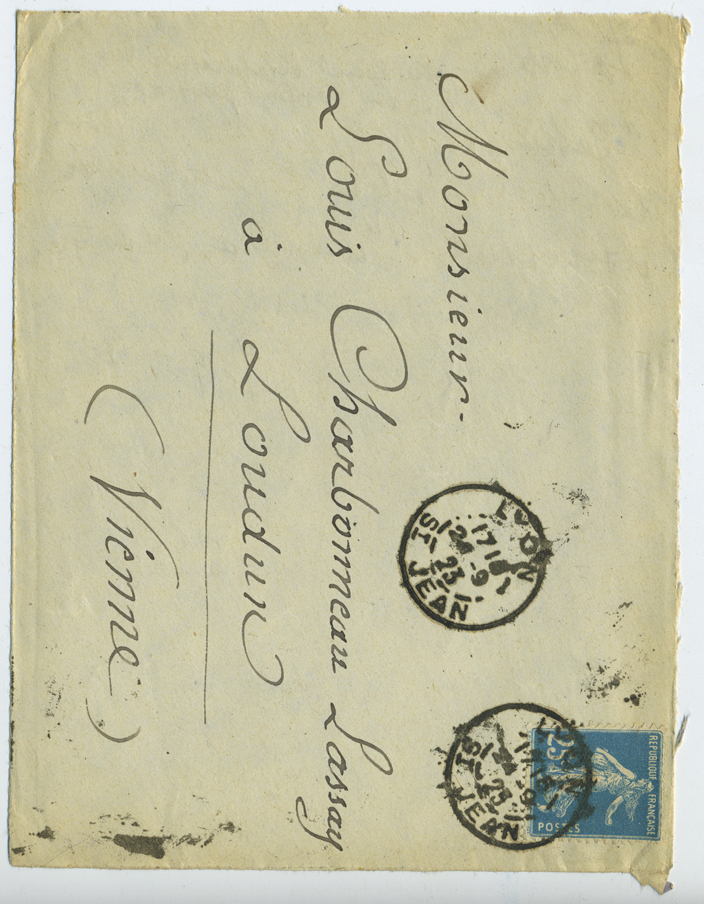 Monsieur
Louis Charbonneau Lassay
à Loudun
(Vienne)
LYON
1718
24-9
23
ST JEAN
LYON
24-9
23
ST JEAN
REPUBLIQUE FRANÇAISE
25c
POSTES